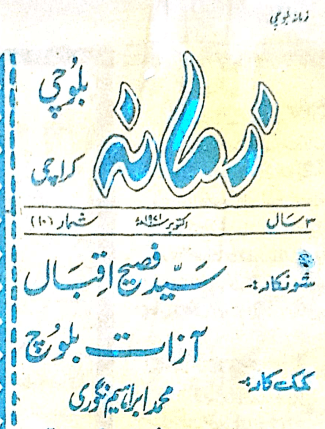 زمانہ بلوچی
بلوچی
زمانہ
کراچی
۳ سال اکتوبر ۱۹۷۱ء شمار (۱۰)
شونکار:- سیّد فصیح اقبال
آزات بلوچ
کمک کار:-
محمد ابراہیم نگوری